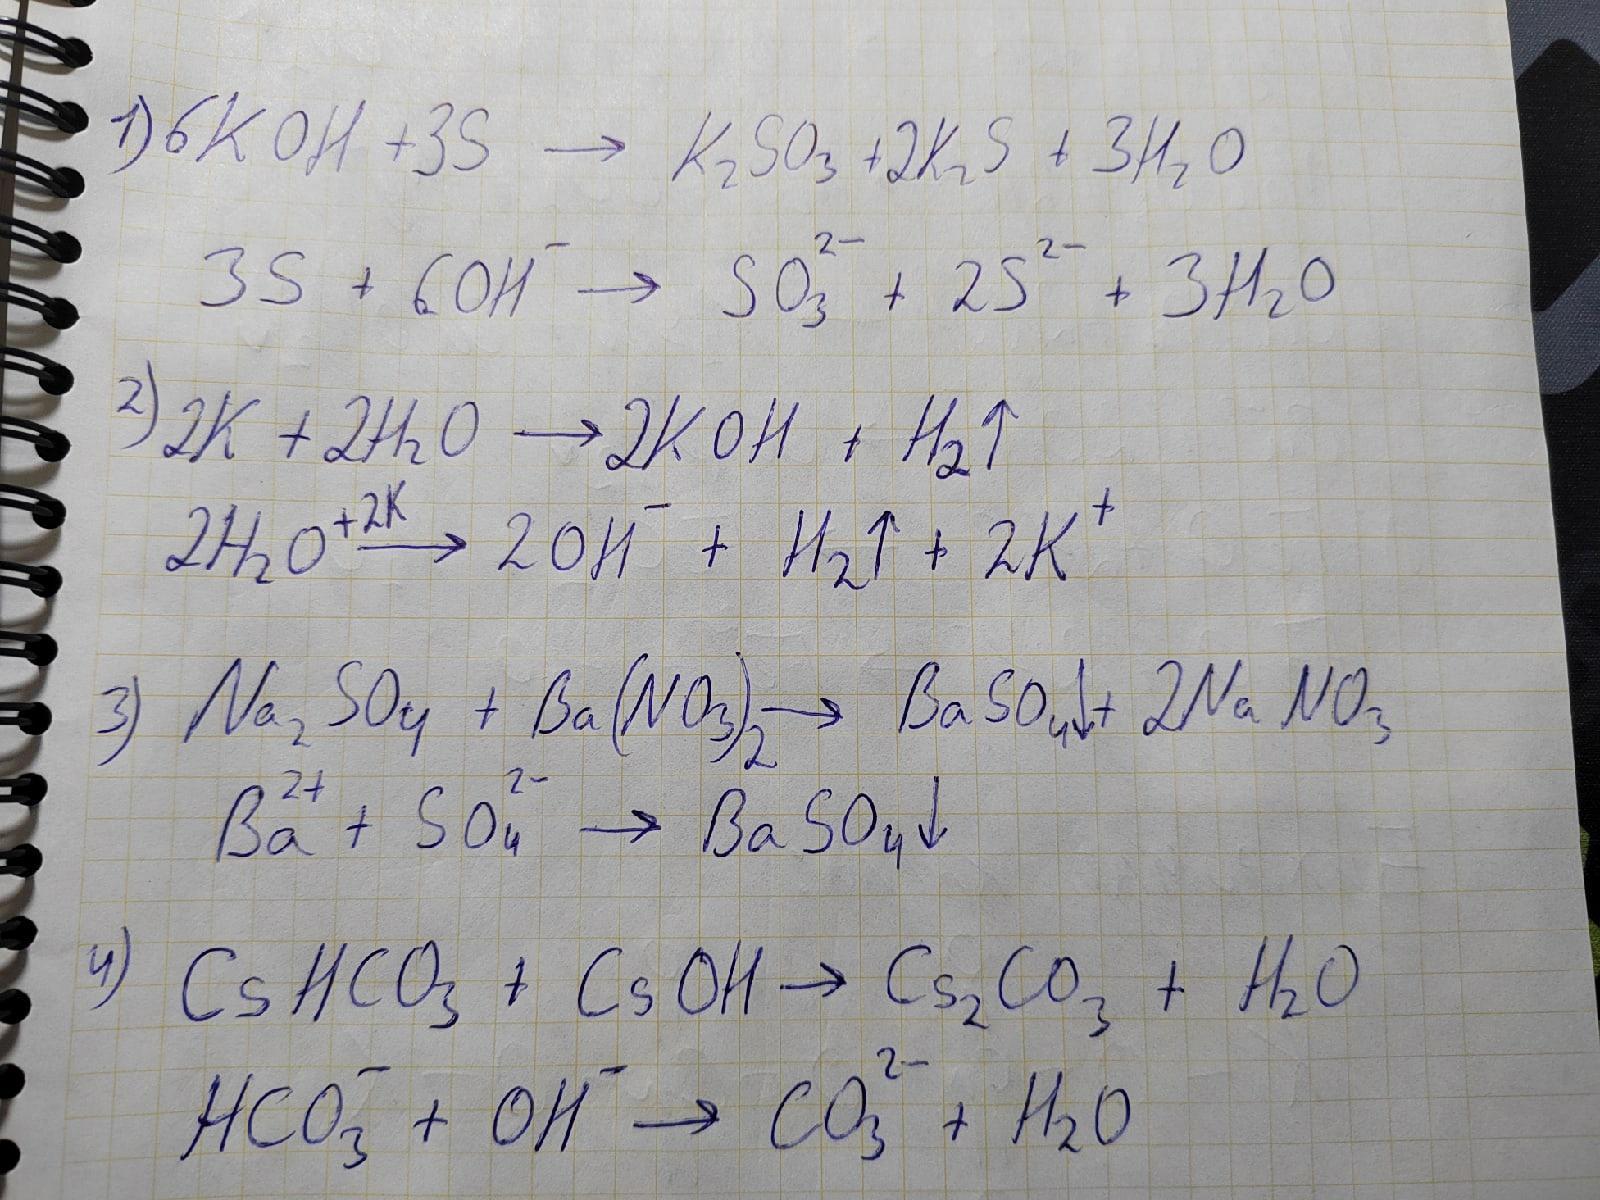 1) 6KOH + 3S → K₂SO₃ + 2K₂S + 3H₂O
3S + 6OH⁻ → SO₃²⁻ + 2S²⁻ + 3H₂O
2) 2K + 2H₂O → 2KOH + H₂↑
2H₂O +2K → 2OH⁻ + H₂↑ + 2K⁺
3) Na₂SO₄ + Ba(NO₃)₂ → BaSO₄↓ + 2NaNO₃
Ba²⁺ + SO₄²⁻ → BaSO₄↓
4) CsHCO₃ + CsOH → Cs₂CO₃ + H₂O
HCO₃⁻ + OH⁻ → CO₃²⁻ + H₂O